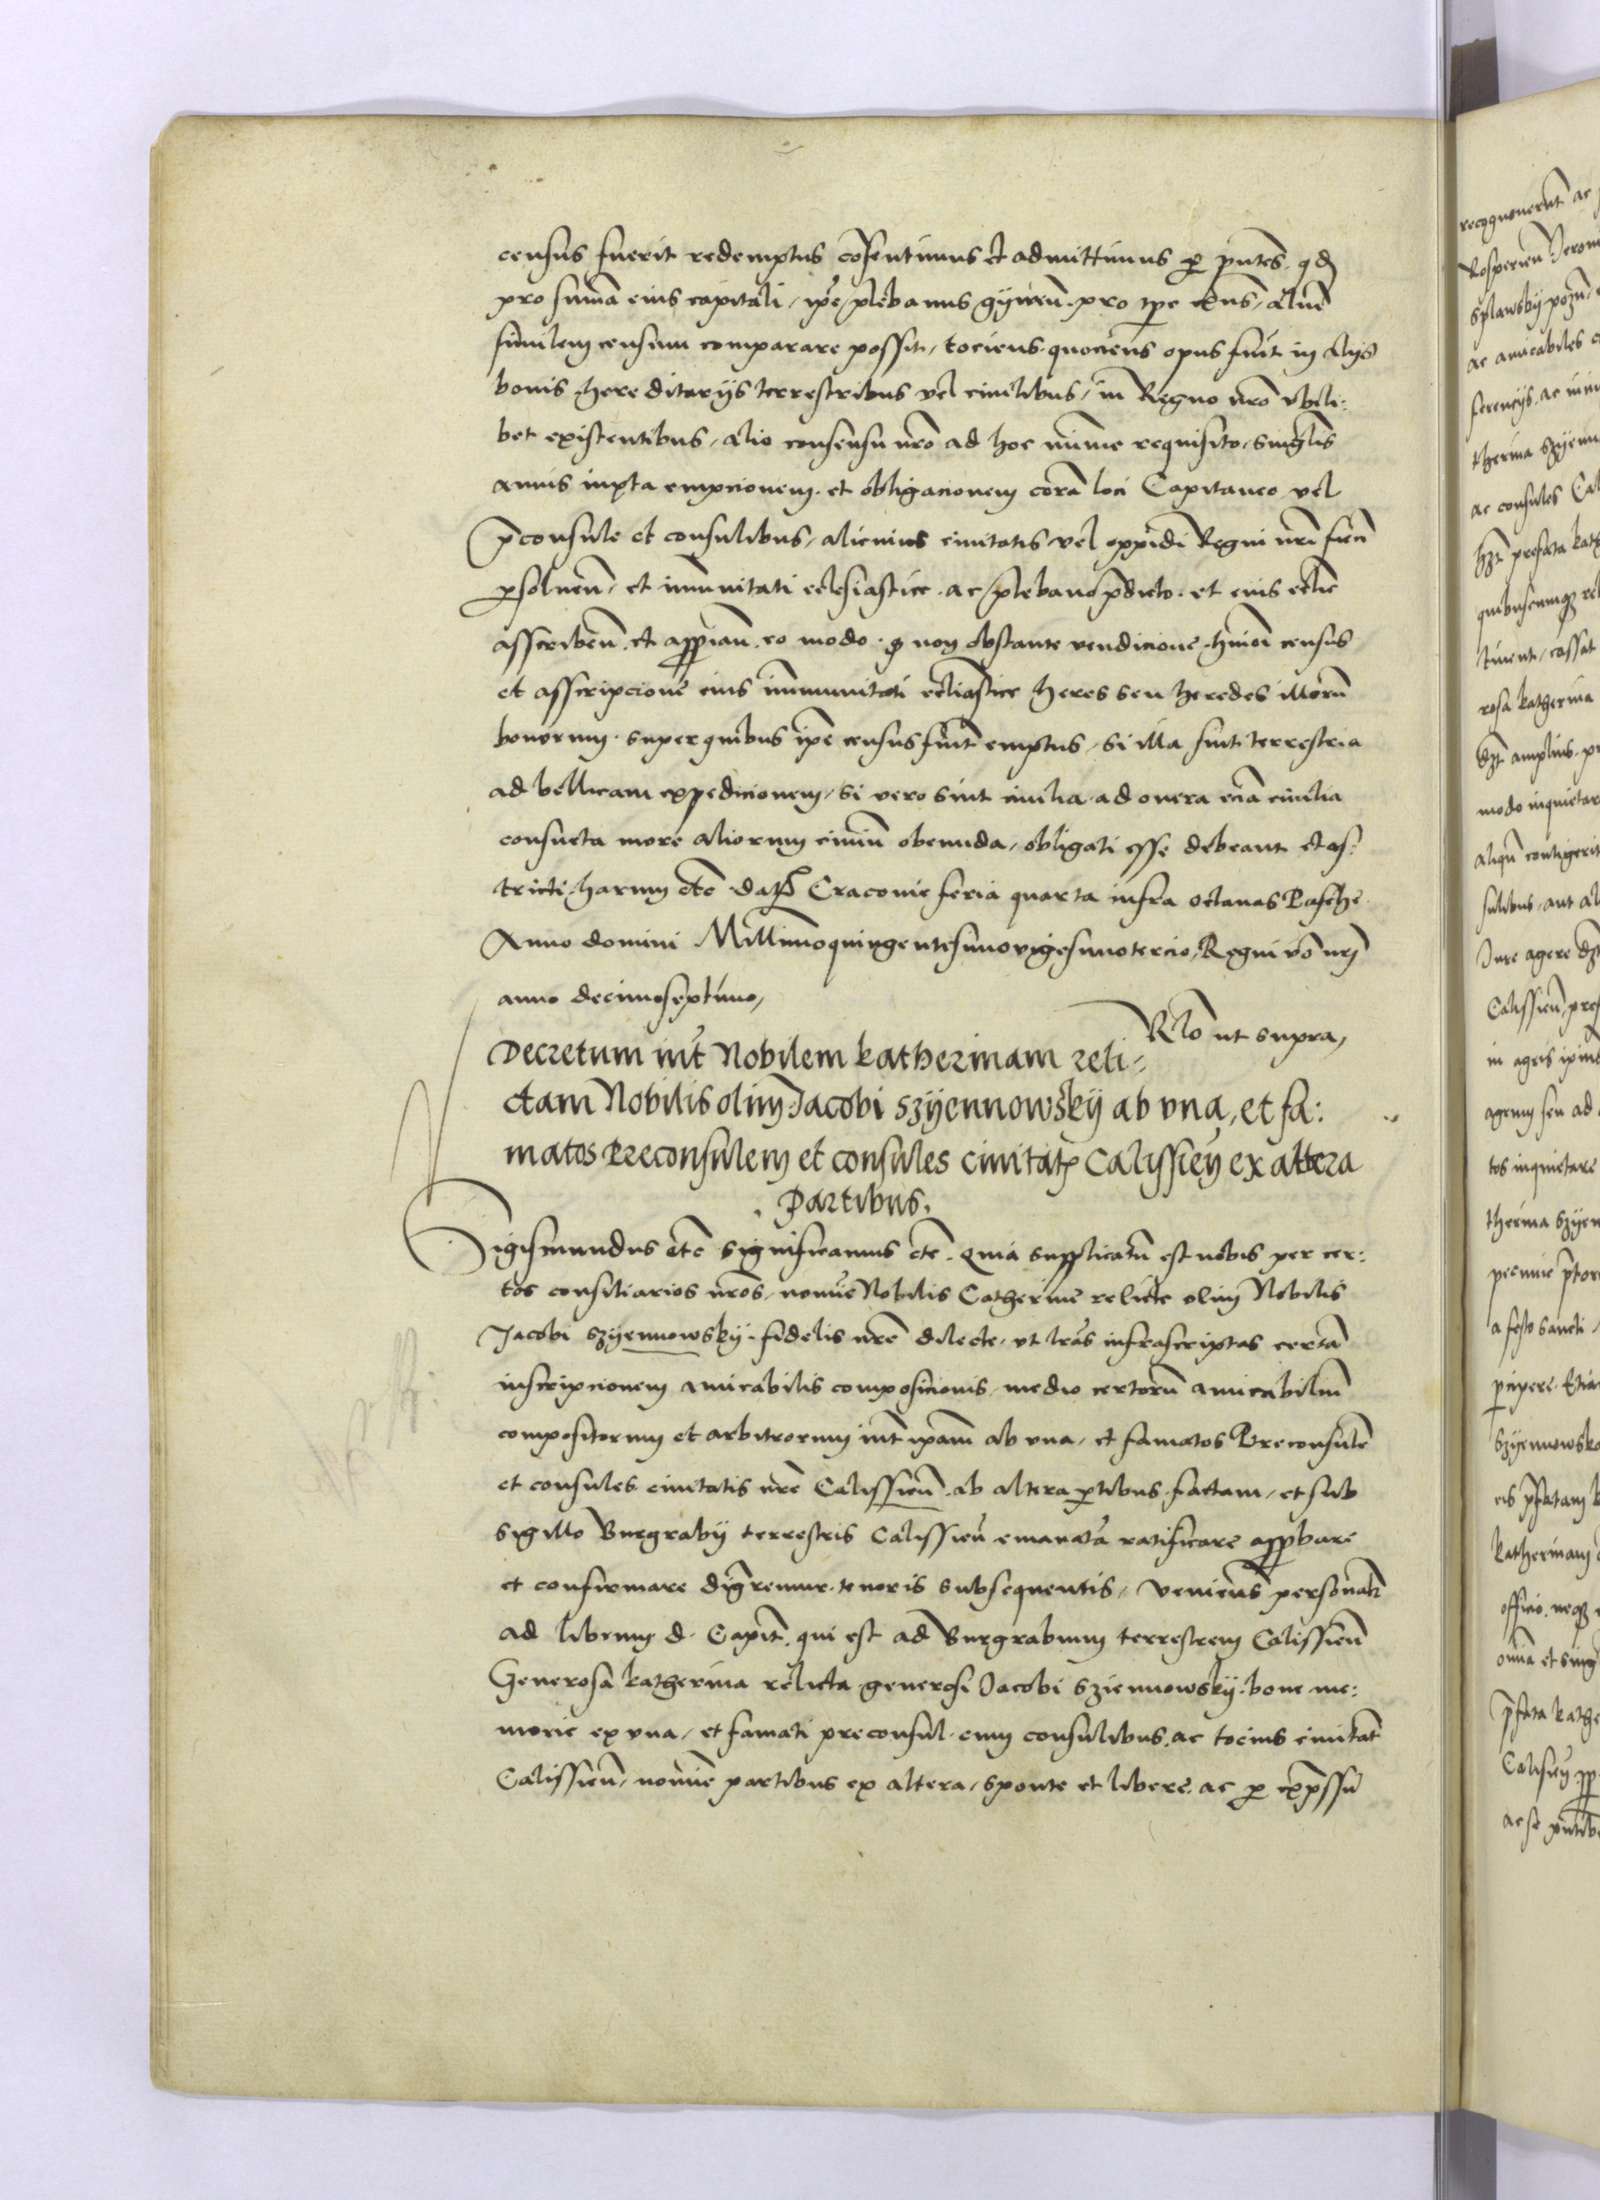 census fuerit redemptus cōsentimus et admittimus p pn̄tes. qd
pro sum̄a eius capitali, ip̄e plebanus gywen̄. pro tp̄e exn̄s, aliū
similem censum comparare possit, tociens quociens opus fuīt in alijs
bonis hereditarijs terrestribus vel ciuilibus, in Regno nr̄o vbili:
bet existentibus, alio consensu nr̄o ad hoc minime requisito, singl̄is
annis iuxta empcionem. et obligacionem corā loci Capitaneo vel
p̄consule et consulibus, alicuius ciuitatis vel oppidi Regni nr̄i fien̄
psoluen̄, et im̄unitati eclesiastice. ac plebano p̄dicto. et eius ecclīe
asscriben̄. et app̄ian̄. eo modo. q non obstante vendicione. hmōi census
et asscripcione eius im̄munitati eccliastice heres seu heredes illorū
bonorum. super quibus ip̄e census fuīt emptus, si illa sint terrestria
ad bellicam expedicionem, si vero sint ciuilia. ad onera eciā ciuilia
consueta more aliorum ciuiū obeunda, obligati esse debeant et as:
tricti. harum etc̄ dat̄ Cracouie feria quarta infra octauas Pasche
Anno domini Millimoquingentesimovigesimotercio, Regni vō nr̄j
anno decimoseptimo,
Rl̄o ut supra,
Decretum int̄ Nobilem katherinam reli:
ctam Nobilis olim Jacobi Szyennowsky ab vna, et fa:
matos Preconsulem et consules ciuitat̄ Calissien̄ ex altera
. Partibus.
Sigismundus etc̄ significamus etc̄. Quia supplicatū est nobis per cer:
tos consiliarios nr̄os, nomīe Nobilis Catherine relicte olim Nobilis
Jacobi Szyennowsky. fidelis nr̄e dilecte. vt lr̄as infrascriptas certā
inscripcionem amicabilis composicionis, medio certorū amicabiliū
compositorum et arbitrorum int̄ ip̄am ab vna, et famatos Preconsulē
et consules ciuitatis nr̄e Calissien̄. ab altera ptibus factam, et sub
sigillo Burgrabij terrestris Calissien̄ emanatā ratificare appbare
et confirmare dign̄remur. tenoris subsequentis, Veniens personalr̄
ad librum d. Capit̄. qui est ad Burgrabium terrestrem Calissien̄
Generosa katherina relicta generosi Jacobi Sziennowsky. bone me:
morie ex vna, et famati preconsul. cum consulibus. ac tocius ciuitat̄
Calissien̄, nomīe partibus ex altera, sponte et libere. ac p exp̄ssū